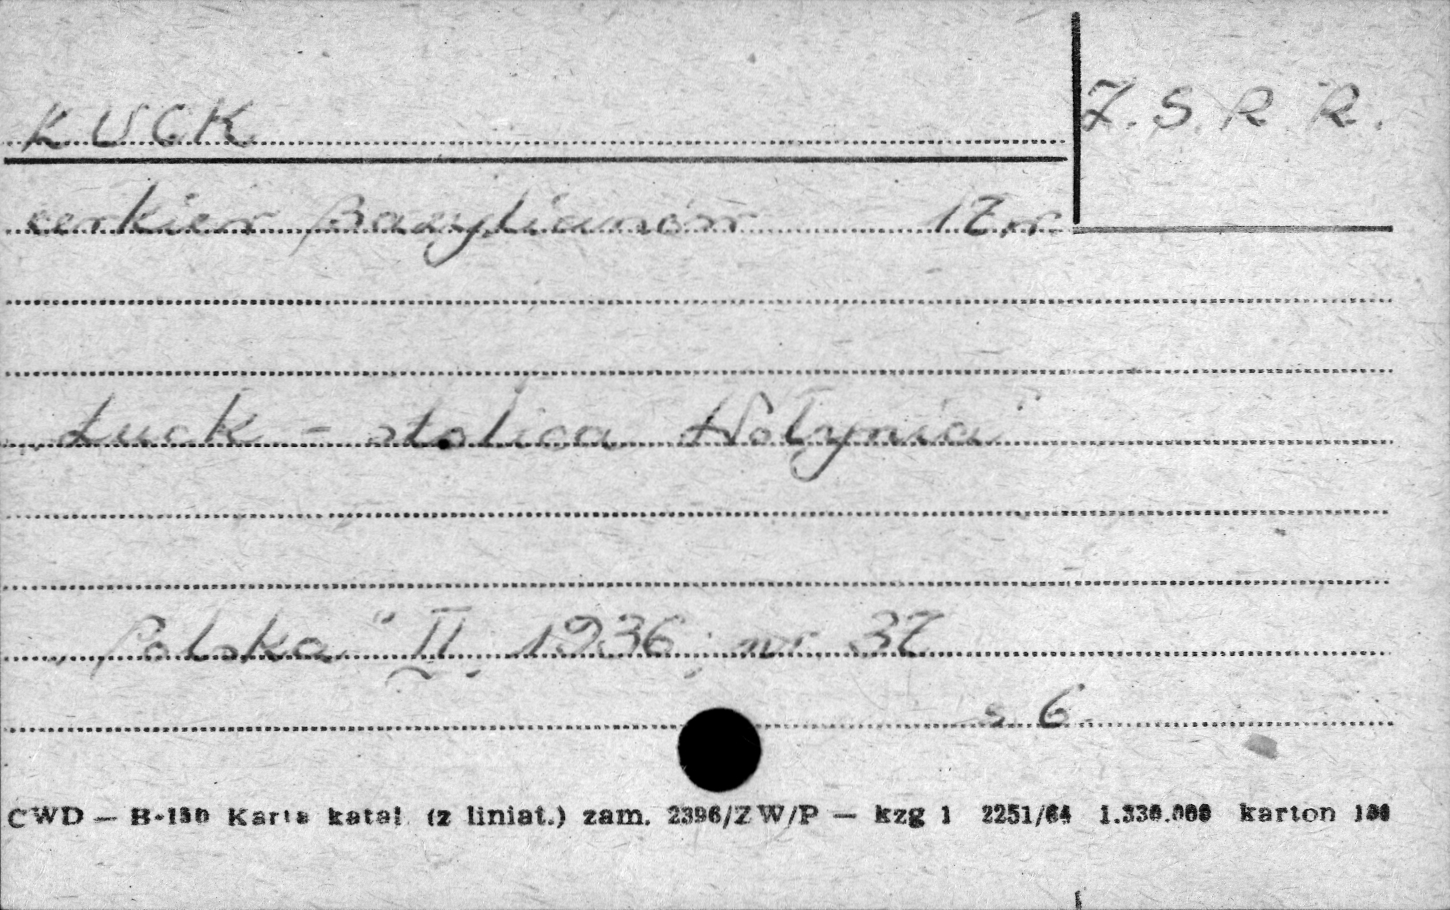 ŁUCK
Z.S.R.R.
cerkiew Bazylianów 17 w.
„Łuck - stolica Wołynia"
„Polska" II. 1936, nr. 37
s. 6.
CWD — B-150 Karta katal. (z liniat.) zam. 2396/ZW/P — kzg 1 2251/64 1.330.000 karton